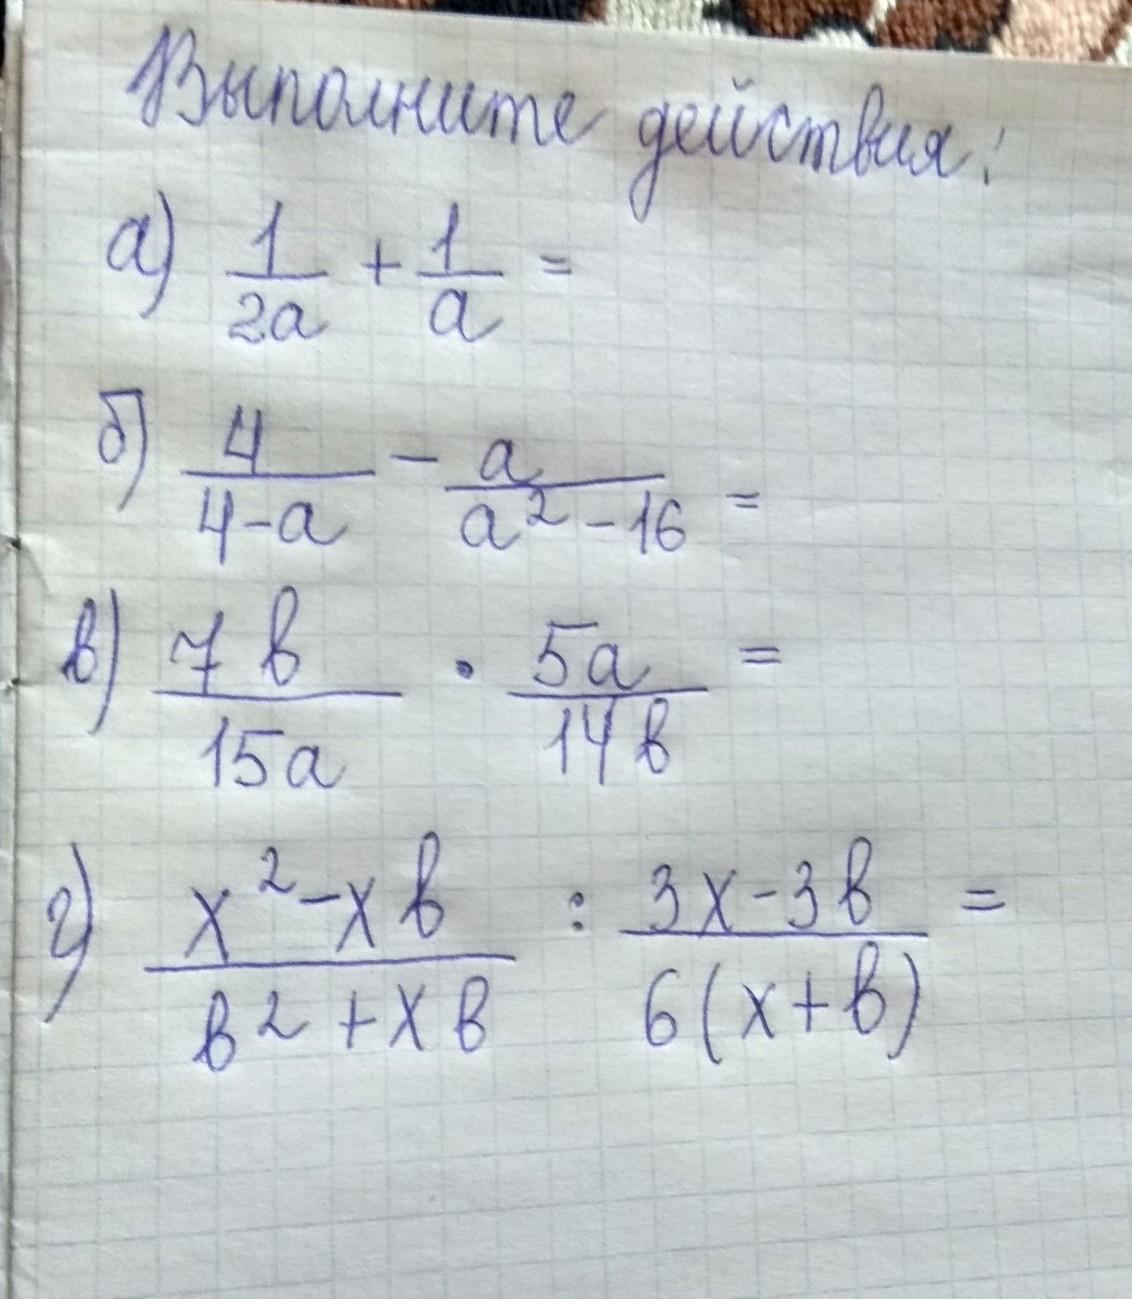 Выполните действия:
а) 1/2a + 1/a =
б) 4/4-a - a/a² - 16 =
в) 7в/15a · 5a/14в =
г) x² - xв/в² + xв : 3x - 3в/6(x + в) =